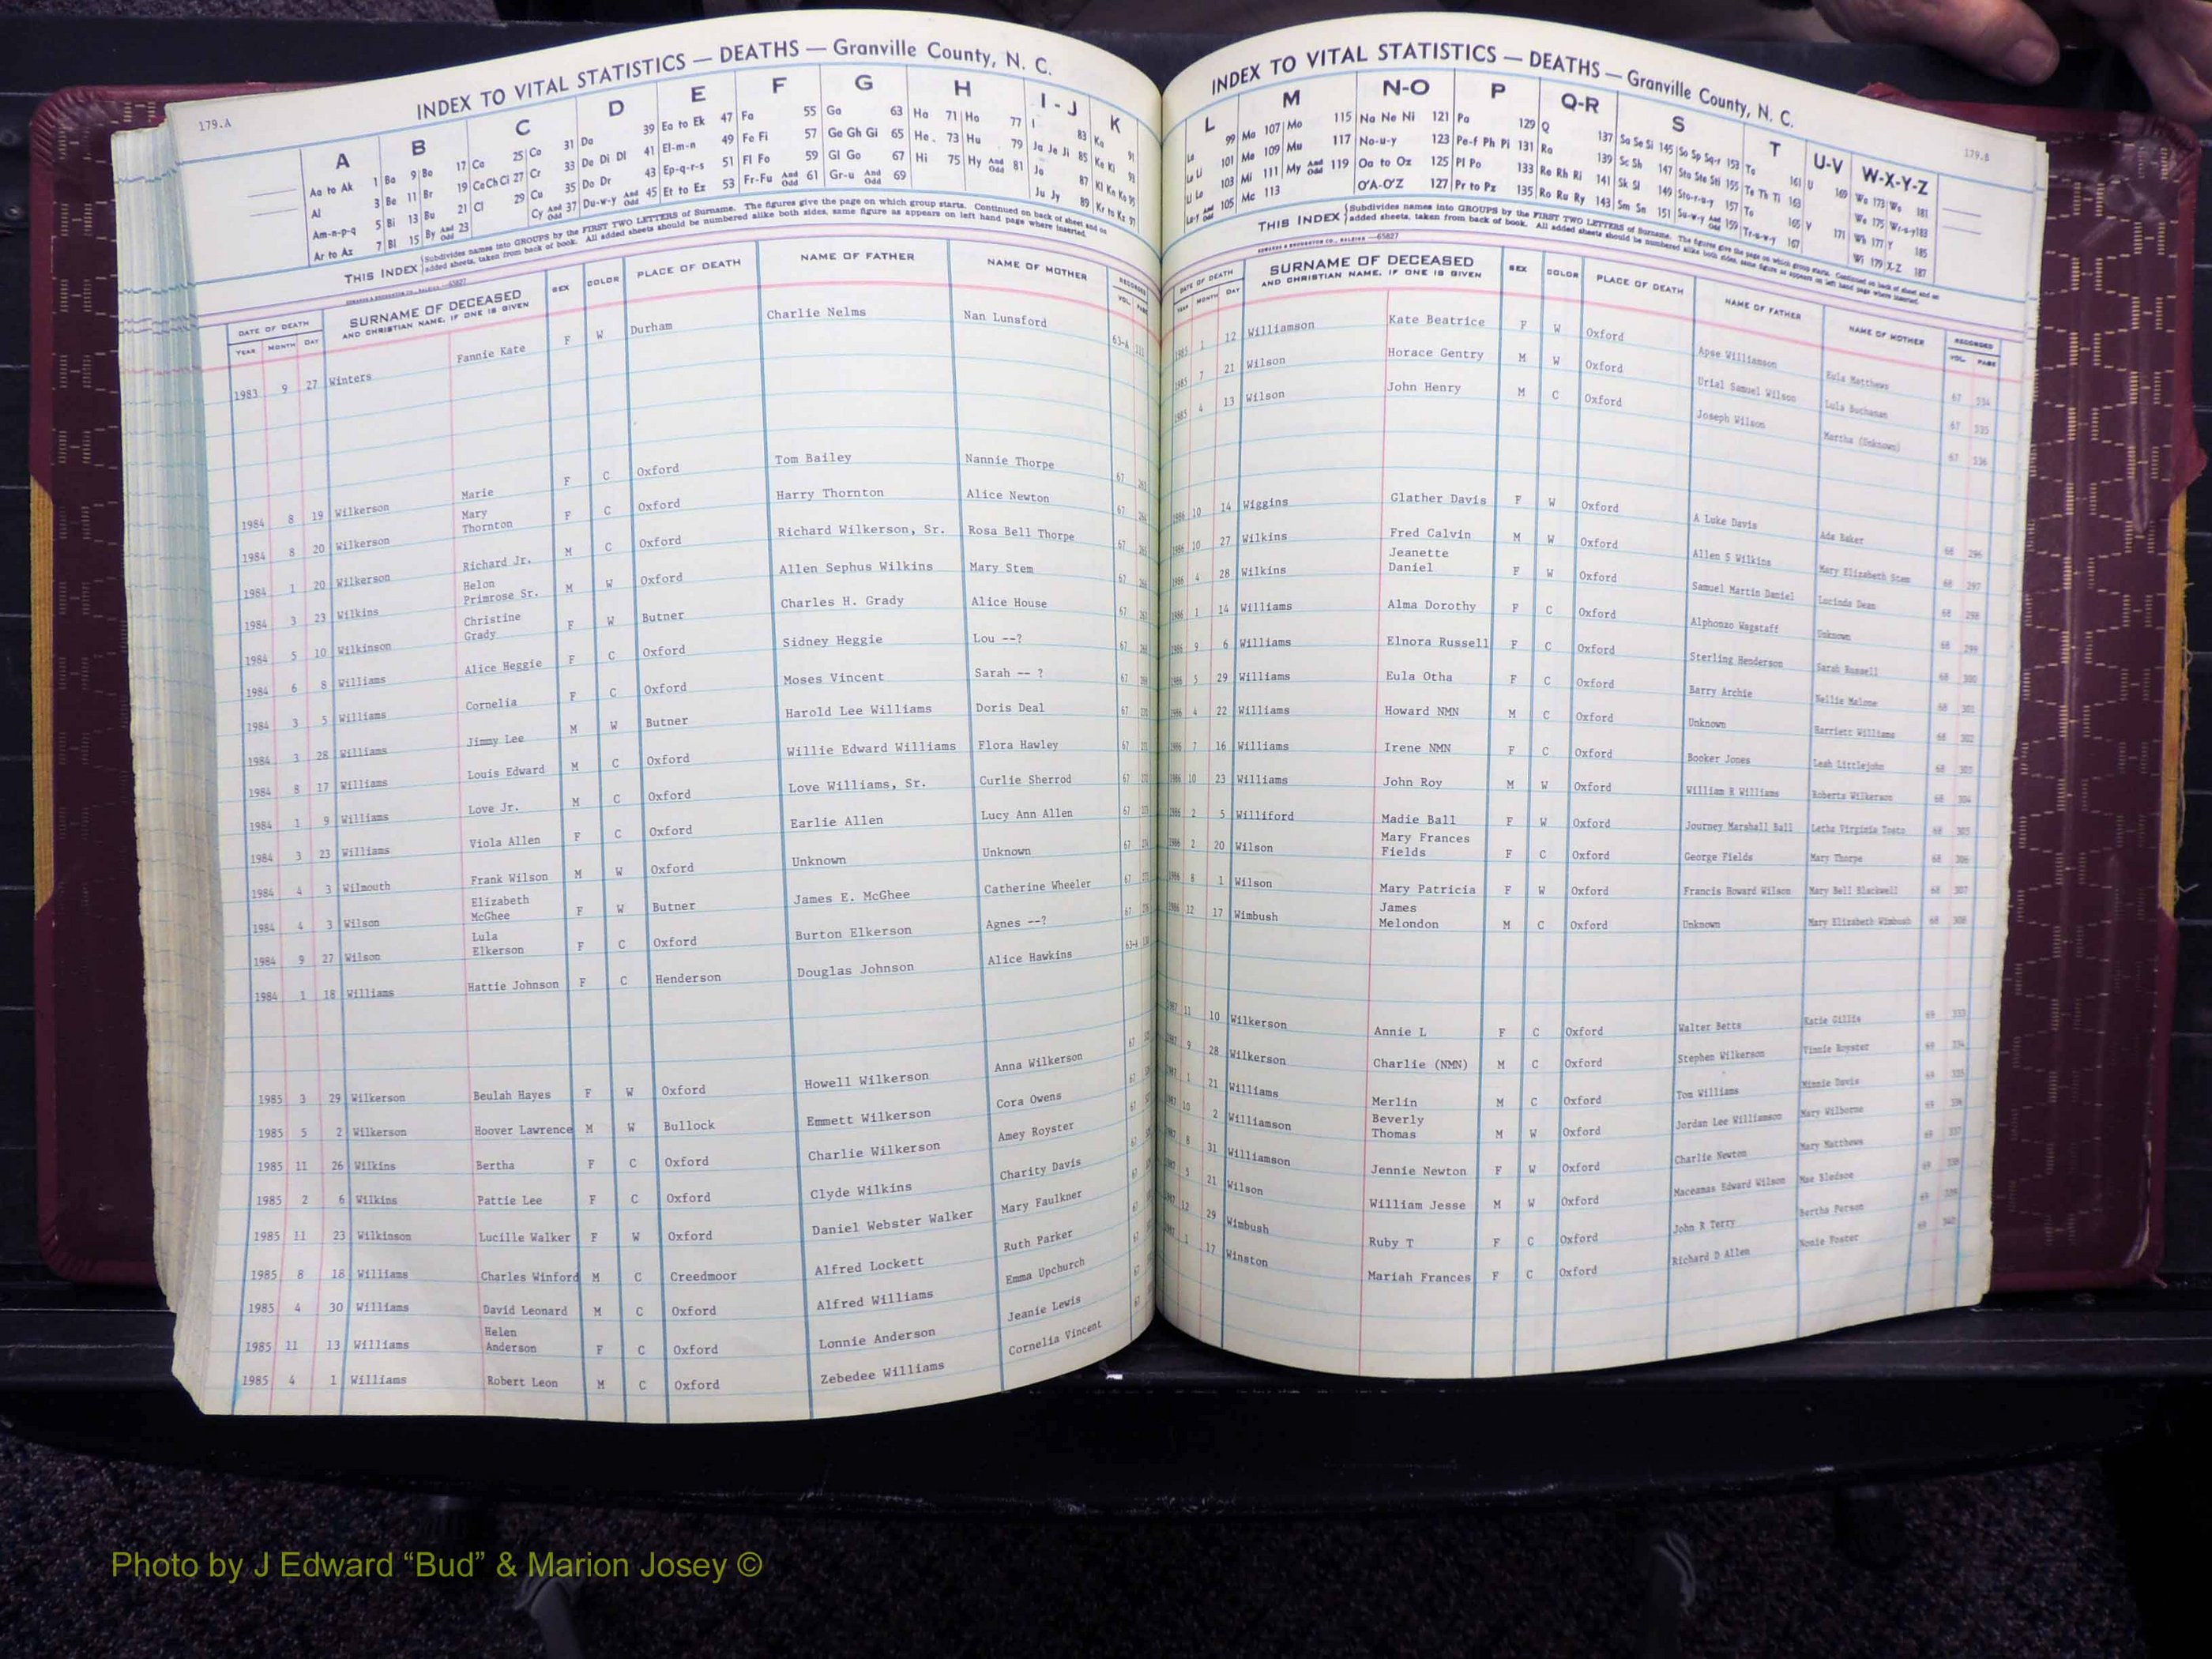 179.A
INDEX TO VITAL STATISTICS — DEATHS — Granville County, N. C.
A B C D E F G H I - J K
Aa to Ak 1 Ba 9 Bo 17 Ca 25 Co 31 Da 39 Ea to Ek 47 Fa 55 Ga 63 Ha 71 Ho 77 I 83 Ka 91
Al 3 Be 11 Br 19 Ce Ch Ci 27 Cr 33 De Di Dl 41 El-m-n 49 Fe Fi 57 Ge Gh Gi 65 He 73 Hu 79 Ja Je Ji 85 Ke Ki 93
Am-n-p-q 5 Bi 13 Bu 21 Cl 29 Cu 35 Do Dr 43 Ep-q-r-s 51 Fl Fo 59 Gl Go 67 Hi 75 Hy And Odd 81 Jo 87 Kl Kn Ko 95
Ar to Az 7 Bl 15 By And Odd 23 Cy And Odd 37 Du-w-y And Odd 45 Et to Ez 53 Fr-Fu And Odd 61 Gr-u And Odd 69 Ju Jy 89 Kr to Kz 97
THIS INDEX Subdivides names into GROUPS by the FIRST TWO LETTERS of Surname. The figures give the page on which group starts. Continued on back of sheet and on
added sheets, taken from back of book. All added sheets should be numbered alike both sides, same figure as appears on left hand page where inserted.
EDWARDS & BROUGHTON CO., RALEIGH —65827
DATE OF DEATH SURNAME OF DECEASED SEX COLOR PLACE OF DEATH NAME OF FATHER NAME OF MOTHER RECORDED
YEAR MONTH DAY AND CHRISTIAN NAME, IF ONE IS GIVEN VOL. PAGE
1983 9 27 Winters Fannie Kate F W Durham Charlie Nelms Nan Lunsford 63-A
1984 8 19 Wilkerson Marie F C Oxford Tom Bailey Nannie Thorpe 67
1984 8 20 Wilkerson Mary Thornton F C Oxford Harry Thornton Alice Newton 67
1984 1 20 Wilkerson Richard Jr. M C Oxford Richard Wilkerson, Sr. Rosa Bell Thorpe 67
1984 3 23 Wilkins Helon Primrose Sr. M W Oxford Allen Sephus Wilkins Mary Stem 67
1984 5 10 Wilkinson Christine Grady F W Butner Charles H. Grady Alice House 67
1984 6 8 Williams Alice Heggie F C Oxford Sidney Heggie Lou --? 67
1984 3 5 Williams Cornelia F C Oxford Moses Vincent Sarah -- ? 67
1984 3 28 Williams Jimmy Lee M W Butner Harold Lee Williams Doris Deal 67
1984 8 17 Williams Louis Edward M C Oxford Willie Edward Williams Flora Hawley 67
1984 1 9 Williams Love Jr. M C Oxford Love Williams, Sr. Curlie Sherrod 67
1984 3 23 Williams Viola Allen F C Oxford Earlie Allen Lucy Ann Allen 67
1984 4 3 Wilmouth Frank Wilson M W Oxford Unknown Unknown 67
1984 4 3 Wilson Elizabeth McGhee F W Butner James E. McGhee Catherine Wheeler 67
1984 9 27 Wilson Lula Elkerson F C Oxford Burton Elkerson Agnes --? 67
1984 1 18 Williams Hattie Johnson F C Henderson Douglas Johnson Alice Hawkins 63-A
1985 3 29 Wilkerson Beulah Hayes F W Oxford Howell Wilkerson Anna Wilkerson 67
1985 5 2 Wilkerson Hoover Lawrence M W Bullock Emmett Wilkerson Cora Owens 67
1985 11 26 Wilkins Bertha F C Oxford Charlie Wilkerson Amey Royster 67
1985 2 6 Wilkins Pattie Lee F C Oxford Clyde Wilkins Charity Davis 67
1985 11 23 Wilkinson Lucille Walker F W Oxford Daniel Webster Walker Mary Faulkner 67
1985 8 18 Williams Charles Winford M C Creedmoor Alfred Lockett Ruth Parker 67
1985 4 30 Williams David Leonard M C Oxford Alfred Williams Emma Upchurch 67
1985 11 13 Williams Helen Anderson F C Oxford Lonnie Anderson Jeanie Lewis
1985 4 1 Williams Robert Leon M C Oxford Zebedee Williams Cornelia Vincent
179.B
INDEX TO VITAL STATISTICS — DEATHS — Granville County, N. C.
L M N-O P Q-R S T U-V W-X-Y-Z
La 99 Ma 107 Mo 115 Na Ne Ni 121 Pa 129 Q 137 Sa Se Si 145 So Sp Sq-r 153 Ta 161 U 169 Wa 173 Wo 181
Le Li 101 Me 109 Mu 117 No-u-y 123 Pe-f Ph Pi 131 Ra 139 Sc Sh 147 Sta Ste Sti 155 Te Th Ti 163 We 175 Wr-u-y 183
Ll Lo 103 Mi 111 My And Odd 119 Oa to Oz 125 Pl Po 133 Re Rh Ri 141 Sk Sl 149 Sto-r-u-y 157 To 165 V 171 Wh 177 Y 185
Lu-y And Odd 105 Mc 113 O'A-O'Z 127 Pr to Pz 135 Ro Ru Ry 143 Sm Sn 151 Su-w-y And Odd 159 Tr-u-w-y 167 Wi 179 X-Z 187
THIS INDEX Subdivides names into GROUPS by the FIRST TWO LETTERS of Surname. The figures give the page on which group starts. Continued on back of sheet and on
added sheets, taken from back of book. All added sheets should be numbered alike both sides, same figure as appears on left hand page where inserted.
EDWARDS & BROUGHTON CO., RALEIGH —65827
DATE OF DEATH SURNAME OF DECEASED SEX COLOR PLACE OF DEATH NAME OF FATHER NAME OF MOTHER RECORDED
YEAR MONTH DAY AND CHRISTIAN NAME, IF ONE IS GIVEN VOL. PAGE
1985 1 12 Williamson Kate Beatrice F W Oxford Apse Williamson Eula Matthews 67 534
1985 7 21 Wilson Horace Gentry M W Oxford Urial Samuel Wilson Lula Buchanan 67 535
1985 4 13 Wilson John Henry M C Oxford Joseph Wilson Martha (Unknown) 67 536
1986 10 14 Wiggins Glather Davis F W Oxford A Luke Davis Ada Baker 68 296
1986 10 27 Wilkins Fred Calvin M W Oxford Allen S Wilkins Mary Elizabeth Stem 68 297
1986 4 28 Wilkins Jeanette Daniel F W Oxford Samuel Martin Daniel Lucinda Dean 68 298
1986 1 14 Williams Alma Dorothy F C Oxford Alphonzo Wagstaff Unknown 68 299
1986 9 6 Williams Elnora Russell F C Oxford Sterling Henderson Sarah Russell 68 300
1986 5 29 Williams Eula Otha F C Oxford Barry Archie Nellie Malone 68 301
1986 4 22 Williams Howard NMN M C Oxford Unknown Harriett Williams 68 302
1986 7 16 Williams Irene NMN F C Oxford Booker Jones Leah Littlejohn 68 303
1986 10 23 Williams John Roy M W Oxford William R Williams Roberta Wilkerson 68 304
1986 2 5 Williford Madie Ball F W Oxford Journey Marshall Ball Letha Virginia 68 305
1986 2 20 Wilson Mary Frances Fields F C Oxford George Fields Mary Thorpe 68 306
1986 8 1 Wilson Mary Patricia F W Oxford Francis Howard Wilson Mary Bell Blackwell 68 307
1986 12 17 Wimbush James Melondon M C Oxford Unknown Mary Elizabeth Wimbush 68 308
1987 11 10 Wilkerson Annie L F C Oxford Walter Betts Katie Gillis 69 333
1987 9 28 Wilkerson Charlie (NMN) M C Oxford Stephen Wilkerson Vinnie Royster 69 334
1987 1 21 Williams Merlin M C Oxford Tom Williams Minnie Davis 69 335
1987 10 2 Williamson Beverly Thomas M W Oxford Jordan Lee Williamson Mary Wilborne 69 336
1987 8 31 Williamson Jennie Newton F W Oxford Charlie Newton Mary Matthews 69 337
1987 5 21 Wilson William Jesse M W Oxford Maceamas Edward Wilson Mae Bledsoe 69 338
1987 12 29 Wimbush Ruby T F C Oxford John R Terry Bertha Person 69 339
1987 1 17 Winston Mariah Frances F C Oxford Richard D Allen Nonie Foster 69 340
Photo by J Edward “Bud” & Marion Josey ©